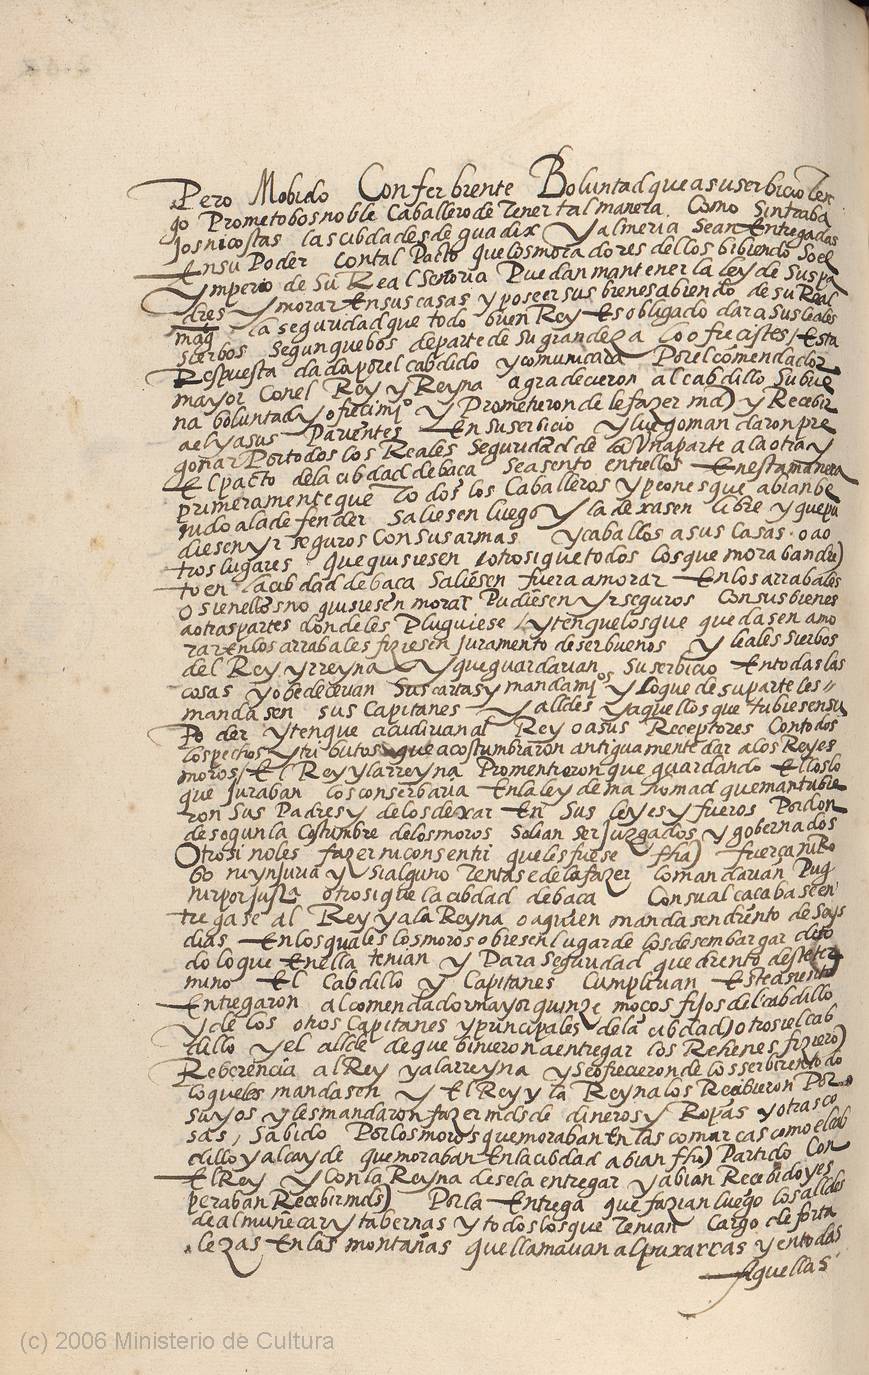 Pero Mobido Con ferbiente Boluntad que a su serbicio ten
go Prometo bos noble Caballero de Tener tal manera. Como sin traba
jos ni costas las cibdades de guadix y almeria sean Entregadas
En su Poder con tal Pacto que los moradores dellos bibiendo so el
ymperio de su Real Señoria Puedan mantener la ley de sus pa
dres y morar En sus casas y poseer sus bienes abiendo de su Real
mag la seguridad que todo buen Rey Es obligado dar a sus leales
sierbos segun que bos de parte de su grandeza lo ofrecistes / Esta
Respuesta dada por el cabdillo y comunicada Por el comendador
mayor con el Rey y Reyna agradecieron al cabdillo su bue
na boluntad y ofrecimi.º y Prometieron de le fazer md) y Recebir
a el y a sus Parientes En su serbicio y luego mandaron pre
gonar Por todos los Reales Seguridad de la Una parte a la otra y
El pacto de la cibdad de baça se asento entrellos En esta manera
primeramente que Todos los Caballeros y peones que abian be
nido a la defender saliesen luego y la dexasen libre y que pu
diesen yr seguros con sus armas y caballos a sus casas o a o
tros lugares que quisiesen / otrosi que todos los que moraban den)
to en la cibdad de baca saliesen fuera a morar En los arrabales
o si en ellos no quisiesen morar Pudiesen yr seguros con sus bienes
a otras partes donde les Pluguiese / yten que los que quedasen a mo
rar en los arrabales fiziesen juramento de ser buenos y leales sierbos
del Rey y rreyna y que guardarian su serbicio En todas las
cosas y obedecerian sus cartas y mandami.os y lo que de su parte les //
mandasen sus Capitanes y alldes y aquellos que tubiesen su
Poder yten que acudirian al Rey o a sus Receptores con todos
los pechos y tributos que acostumbraron antiguamente dar a los Reyes
moros / El Rey y la rreyna Prometieron que guardando Ellos lo
que juraban los conserbaria En la ley de mahomad que mantubie
ron sus Padres y de los dexar En sus leyes y fueros Por don
de segun la costumbre de los moros solian ser juzgados y gobernados
Otrosi no les fazer ni consentir que les fuese fha) fuerça ni Ro
bo ni ynjuria y si alguno Tentase de la fazer lo mandarian Pug
nir por justa otrosi que la cibdad de baca con su alcaçaba se en
tregase al Rey y a la Reyna o a quien mandasen drento de seys
dias En los quales los moros obiesen lugar de los desembargar de to
do lo que En ella tenian y Para seguridad que drento deste ter
mino El cabdillo y capitanes cumplirian Este asiento
Entregaron al comendador mayor quinze moços fijos del cabdillo
y de los otros Capitanes y principales de la cibdad) otrosi el cab
dillo y el allde de que binieron a entregar los Rehenes fiziero)
Reberencia al Rey y a la rreyna y se ofrecieron de los serbir en todo
lo que les mandasen y El Rey y la Reyna los Recibieron Por
suyos y les mandaron fazer mds de dineros y Ropas y otras co
sas / Sabido Por los moros que moraban En las comarcas como el cab
dillo y alcayde que moraban En la cibdad abian fho) Partido con
El Rey y con la Reyna de se la entregar y abian Recebido y es
peraban Recebir mds) Por la Entrega que fazian luego los alldes
de almuñecar y tabernas y todos los que Tenian cargo de forta
lezas En las montañas que llamavan alpuxarras y en todas
Aquellas
(c) 2006 Ministerio de Cultura